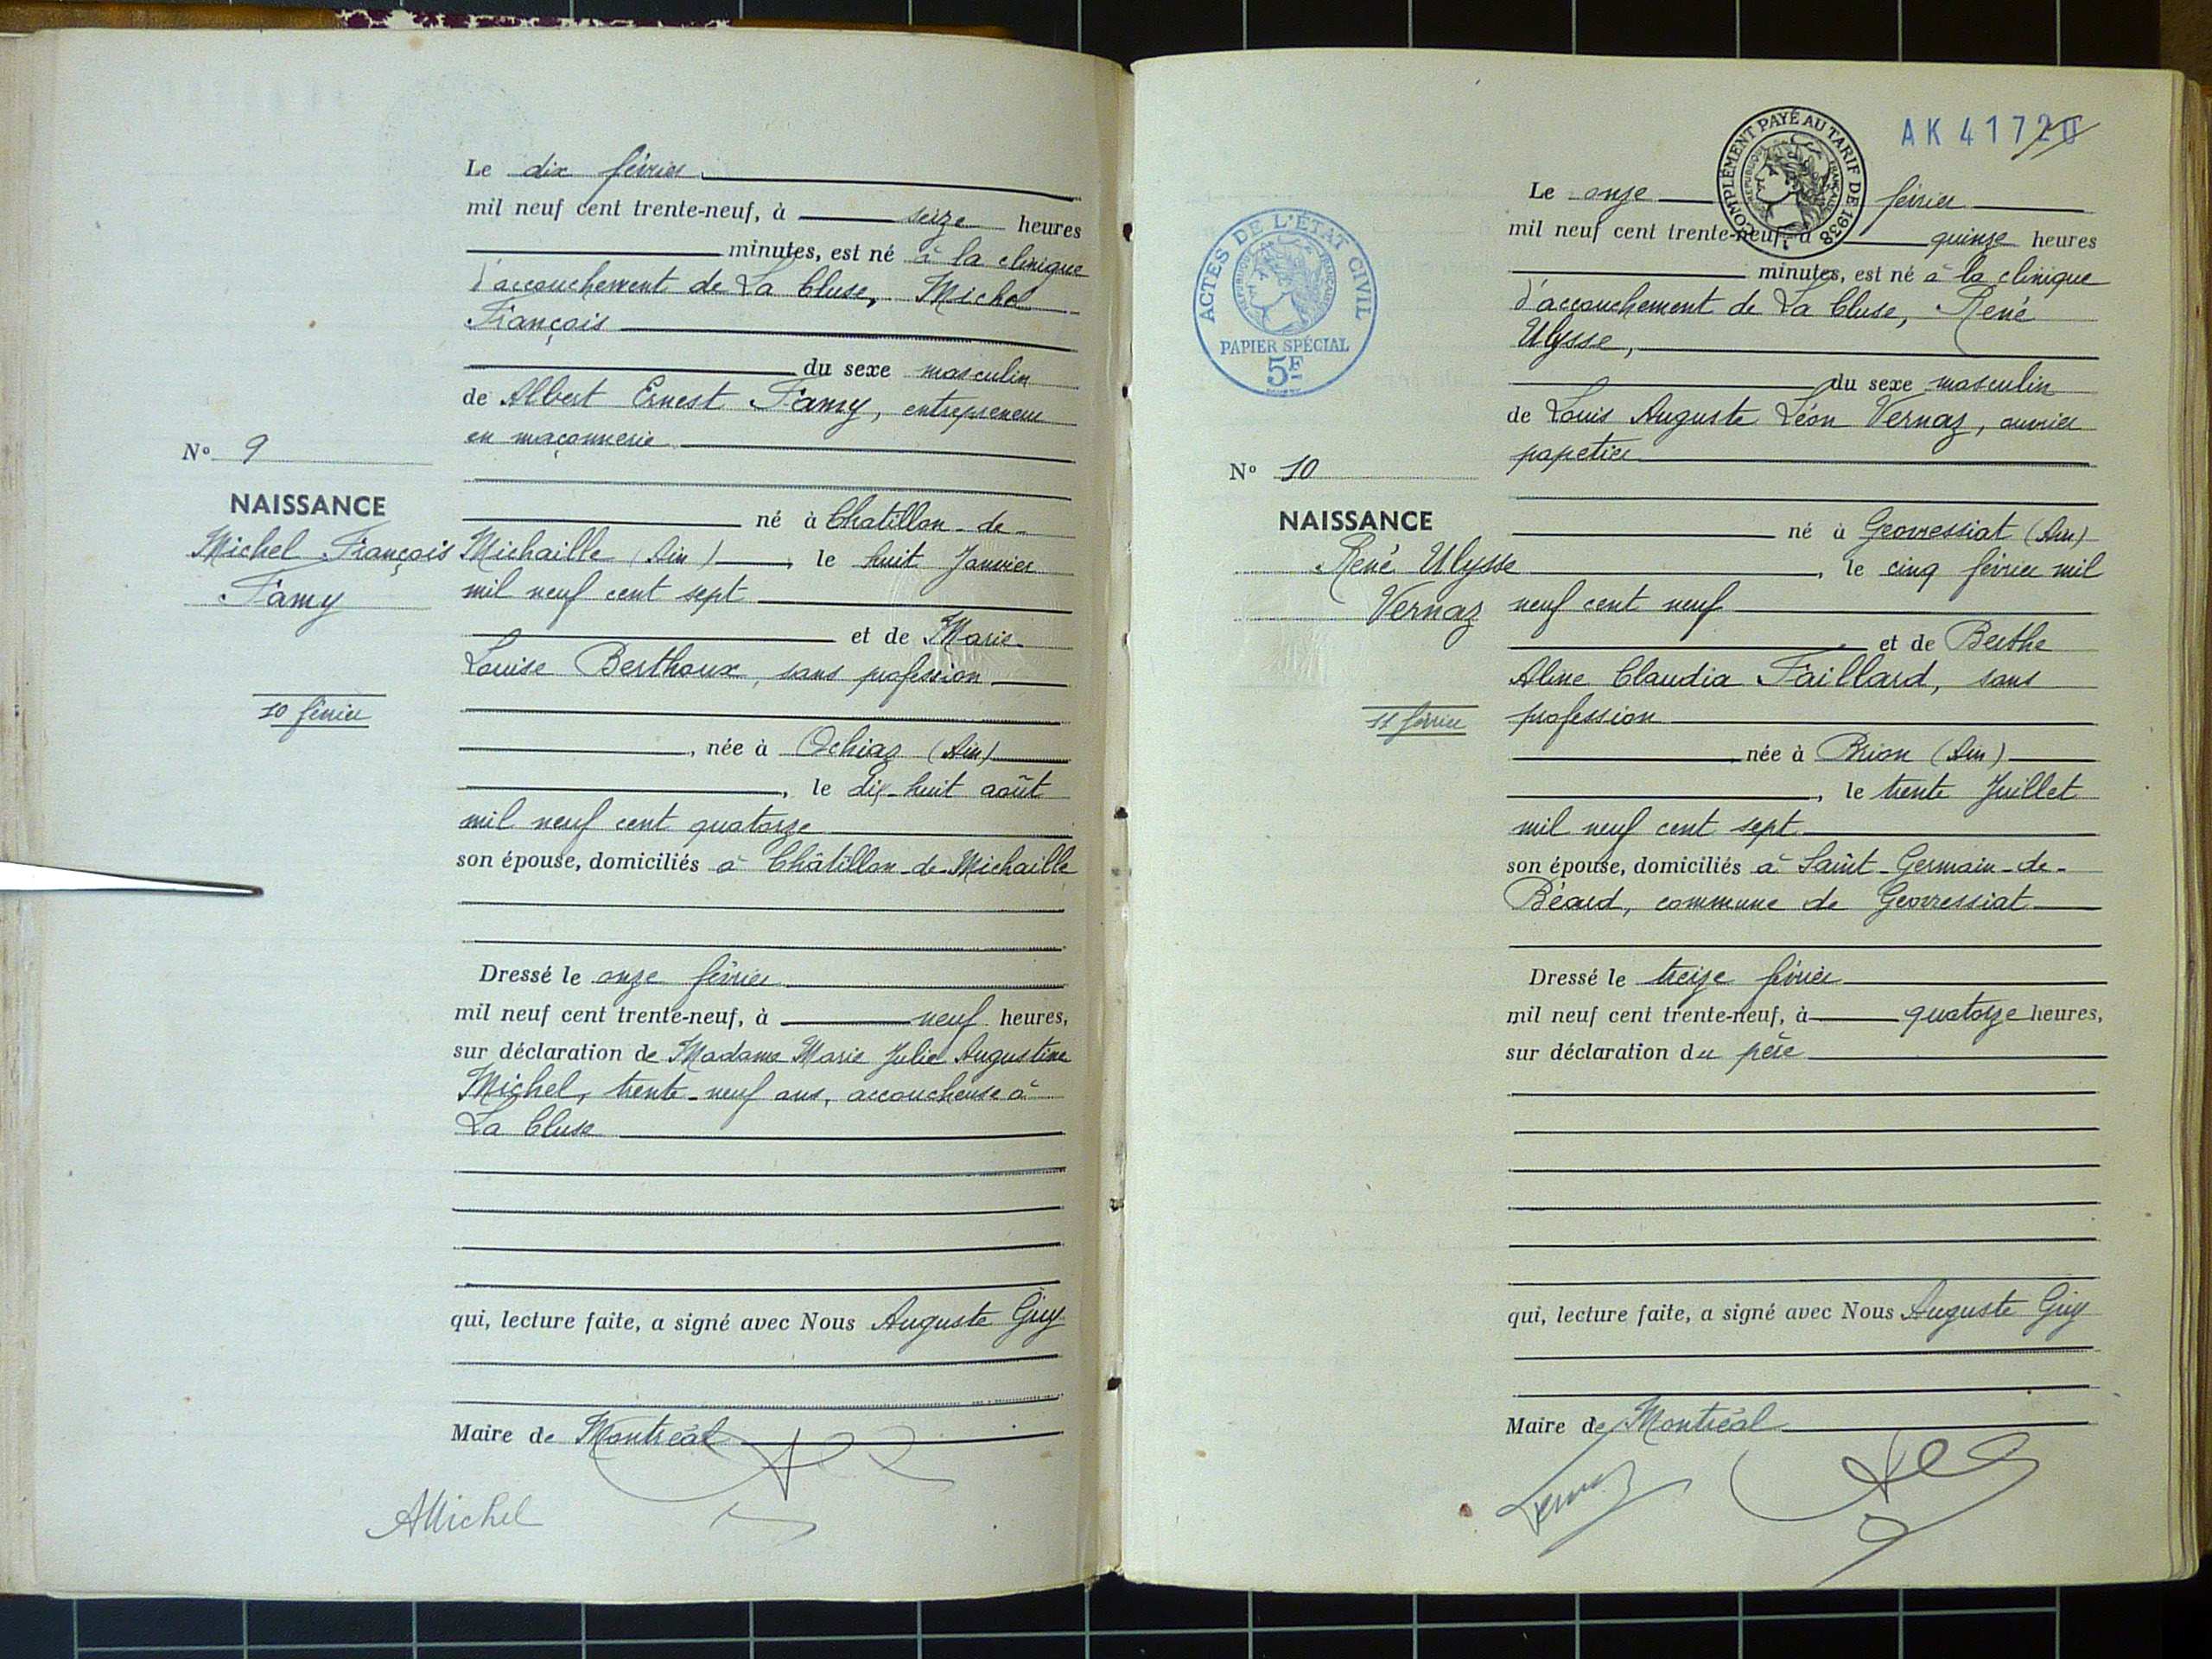 Le dix février
mil neuf cent trente-neuf, à seize heures
minutes, est né à la clinique
d'accouchement de La Cluse, Michel
François
du sexe masculin
de Albert Ernest Famy, entrepreneur
en maçonnerie
né à Chatillon-de-
Michaille (Ain), le huit Janvier
mil neuf cent sept
et de Marie
Louise Berthoux, sans profession
, née à Ochiaz (Ain)
, le dix-huit août
mil neuf cent quatorze
son épouse, domiciliés à Châtillon-de-Michaille
Dressé le onze février
mil neuf cent trente-neuf, à neuf heures,
sur déclaration de Madame Marie Julie Augustine
Michel, trente-neuf ans, accoucheuse à
La Cluse
qui, lecture faite, a signé avec Nous Auguste Guy
Maire de Montréal
AMichel
No 9
NAISSANCE
Michel François
Famy
10 février
AK 41720
COMPLÉMENT PAYÉ AU TARIF DE 1938
RÉPUBLIQUE FRANÇAISE
ACTES DE L'ÉTAT CIVIL
RÉPUBLIQUE FRANÇAISE
PAPIER SPÉCIAL
5F
No 10
NAISSANCE
René Ulysse
Vernaz
11 février
Le onze février
mil neuf cent trente-neuf, à quinze heures
minutes, est né à la clinique
d'accouchement de La Cluse, René
Ulysse,
du sexe masculin
de Louis Auguste Léon Vernaz, ouvrier
papetier
né à Geovressiat (Ain)
, le cinq février mil
neuf cent neuf
et de Berthe
Aline Claudia Faillard, sans
profession
, née à Brion (Ain)
, le trente Juillet
mil neuf cent sept
son épouse, domiciliés à Saint-Germain-de-
Béard, commune de Geovressiat
Dressé le treize février
mil neuf cent trente-neuf, à quatorze heures,
sur déclaration du père
qui, lecture faite, a signé avec Nous Auguste Guy
Maire de Montréal
Vernaz